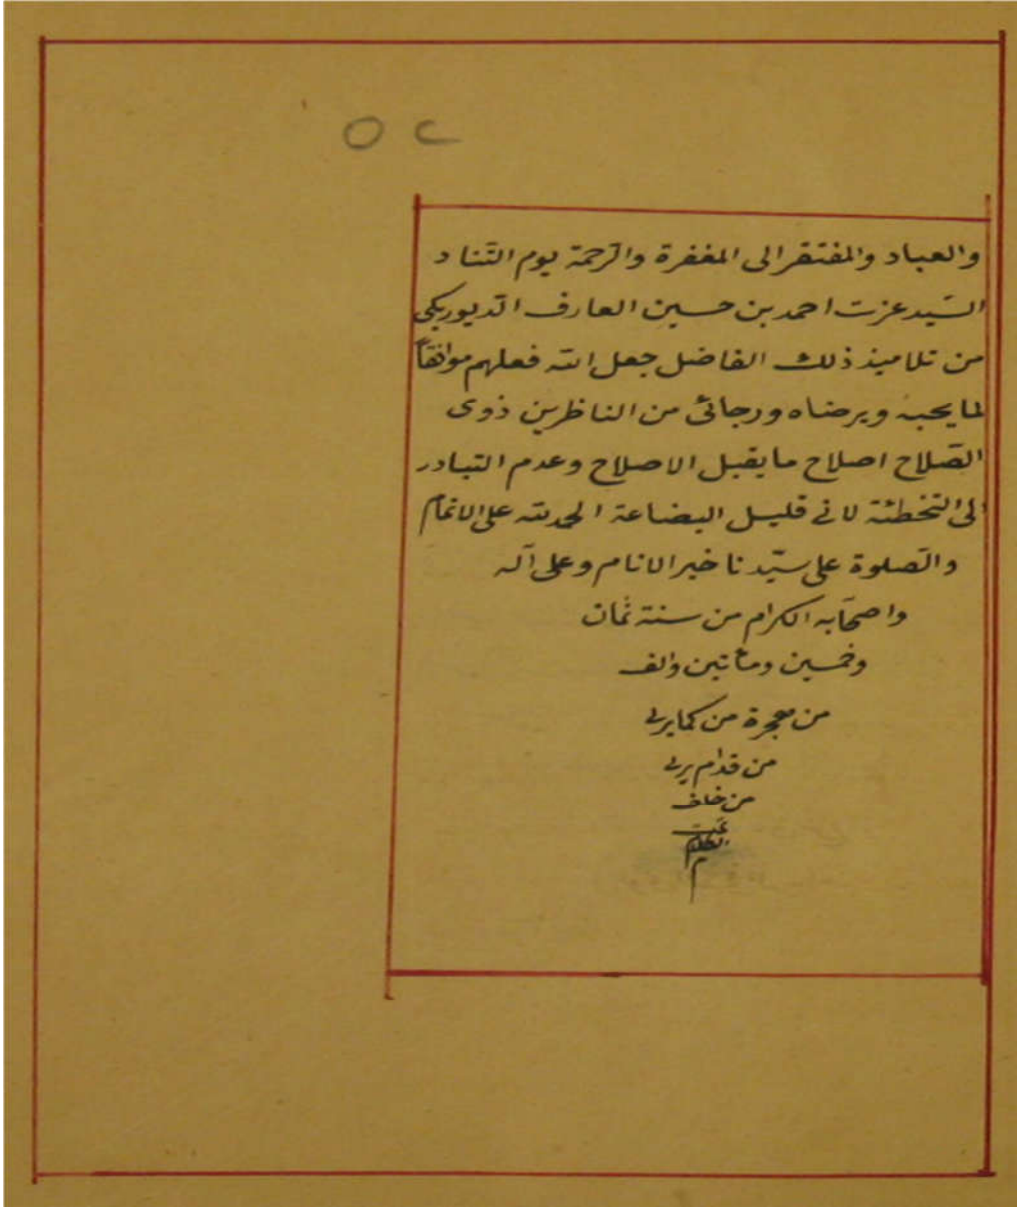 ٥٢
والعباد والمفتقر الى المغفرة والرّحمة يوم التّناد
السّيد عزت احمد بن حسين العارف الديوريكى
من تلاميذ ذلك الفاضل جعل الله فعلهم موافقاً
لما يحبه ويرضاه ورجائى من الناظرين ذوى
الصّلاح اصلاح ما يقبل الاصلاح وعدم التبادر
الى التخطئة لانى قليل البضاعة الحمد لله على الاتمام
والصّلوة على سيّدنا خير الانام وعلى آله
واصحابه الكرام من سنة ثمان
وخمسين ومأتين والف
من هجرة من كما يرى
من قدام يرى
من خلف
تمت